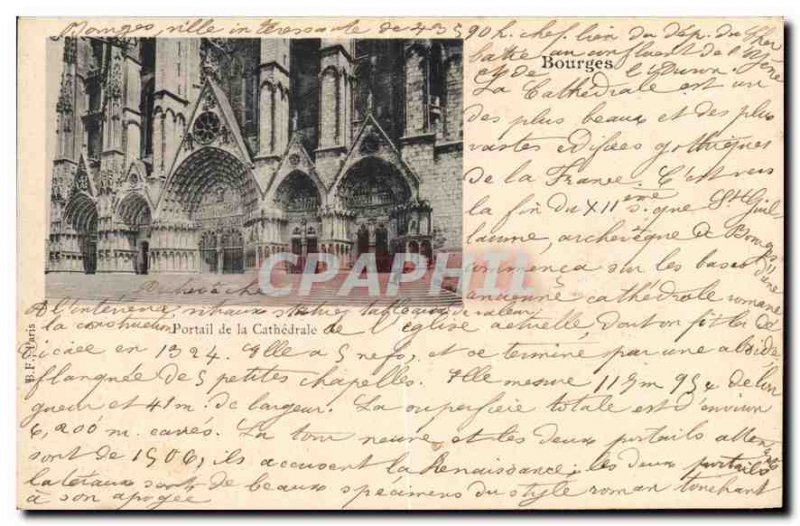 Bourges, ville intéressante de 43 590 h. chef. lieu du dép. du Cher
bâtie au confluent de l'Yèvre
et de l'Auron.
Bourges
La Cathédrale est un
des plus beaux et des plus
vastes édifices gothiques
de la France. C'est vers
la fin du XII ème s. que St Guil
laume, archevêque de Bourges
commença sur les bases d'une
ancienne cathédrale romane
A l'intérieur, vitraux statues tableaux de valeur.
la construction de l'église actuelle, dont on fit la dé
Portail de la Cathédrale
B. F., Paris
dicace en 1324. Elle a 5 nefs, et se termine par une abside
flanquée de 5 petites chapelles. Elle mesure 115m 95 de lon
gueur et 41m. de largeur. La superficie totale est d'environ
6,200 m. carrés. La tour neuve et les deux portails
sont de 1506, ils accusent la Renaissance; les deux portails
latéraux sont de beaux spécimens du style roman touchant
à son apogée
CPARHIL